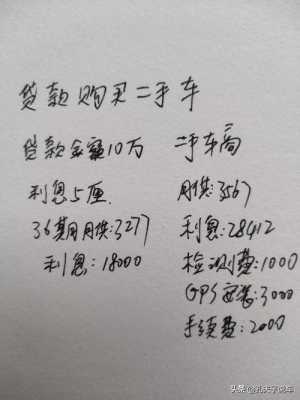 贷款购买二手车
贷款金额10万 二手车商
利息5厘 月供:3567
36期月供:3277 利息:28412
利息:18000 检测费:1000
GPS安装:3000
手续费:2000
头条 @孔庆宇说车